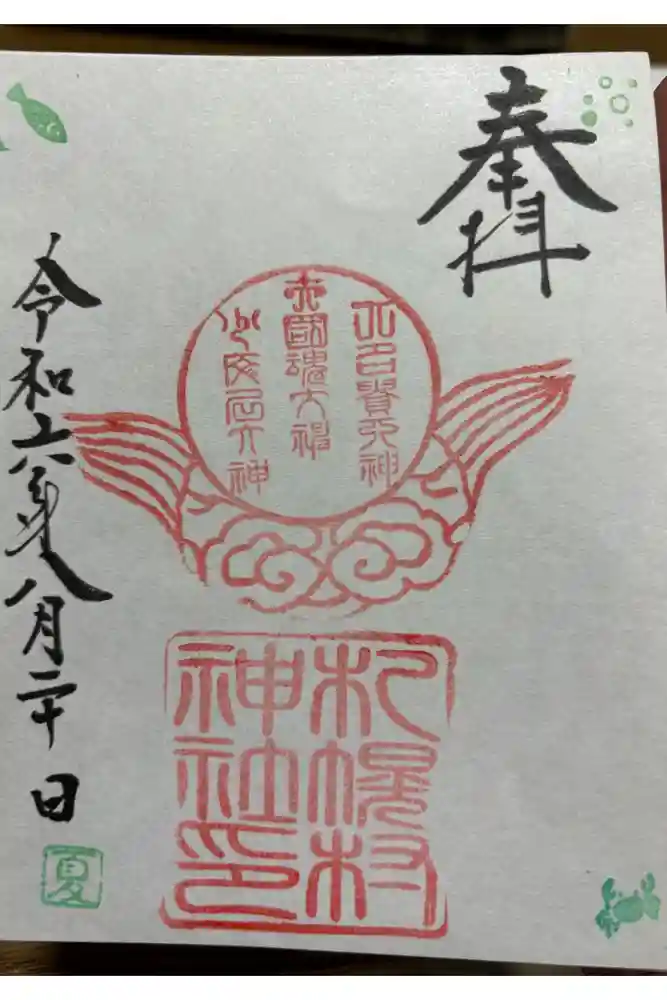 奉拝
大己貴大神
大國魂大神
少彦名大神
札幌村
神社印
令和六年八月二十日
夏